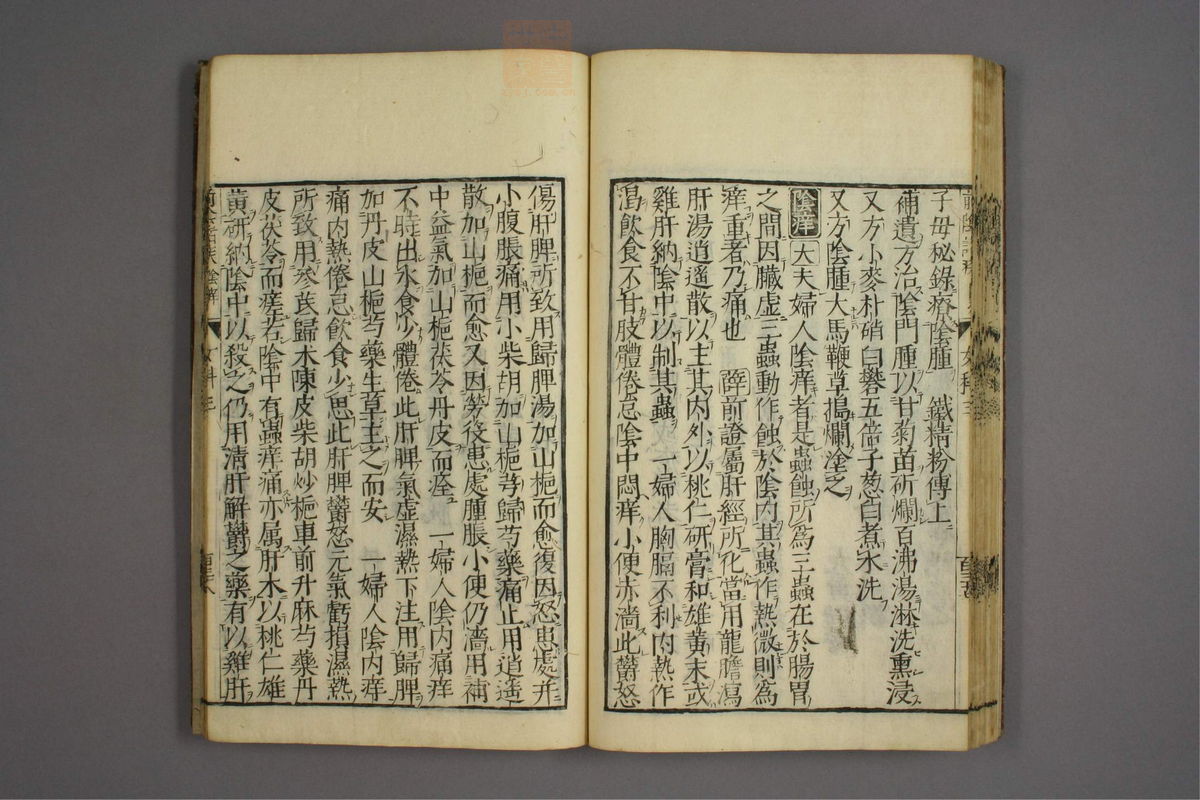 子母秘錄療陰腫 鐵精粉傅上
補遺方治陰門腫以甘菊苗研爛百沸湯淋洗熏浸
又方小麥朴硝白礬五棓子葱白煮水洗
又方陰腫大馬鞭草搗爛塗之
陰痒 大夫婦人陰痒者是蟲蝕所為三蟲在於腸胃
之間因臟虛三蟲動作蝕於陰內其蟲作熱微則為
痒重者乃痛也 薛前證屬肝經所化當用龍膽瀉
肝湯逍遙散以主其內外以桃仁研膏和雄黃末或
雞肝納陰中以制其蟲 一婦人胸膈不利內熱作
渴飲食不甘肢體倦怠陰中悶痒小便赤濇此欝怒
傷肝脾所致用歸脾湯加山梔而愈復因怒患處并
小腹脹痛用小柴胡加山梔芎歸芍藥痛止用逍遙
散加山梔而愈又因勞役患處腫脹小便仍濇用補
中益氣加山梔茯苓丹皮而痊 一婦人陰內痛痒
不時出水食少體倦此肝脾氣虛濕熱下注用歸脾
加丹皮山梔芍藥生草主之而安 一婦人陰內痒
痛內熱倦怠飲食少思此肝脾欝怒元氣虧損濕熱
所致用參芪歸术陳皮柴胡炒梔車前升麻芍藥丹
皮茯苓而瘥若陰中有蟲痒痛亦属肝木以桃仁雄
黃研納陰中以殺之仍用清肝解欝之藥有以雞肝